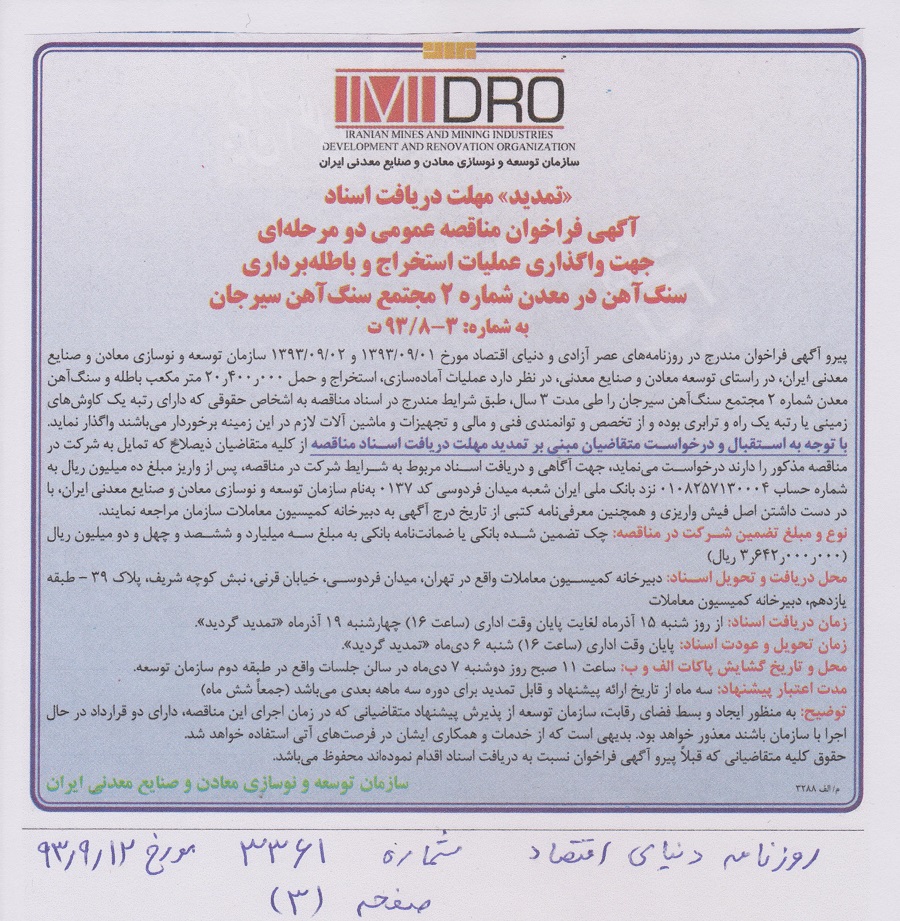 IMIDRO
IRANIAN MINES AND MINING INDUSTRIES
DEVELOPMENT AND RENOVATION ORGANIZATION
سازمان توسعه و نوسازی معادن و صنایع معدنی ایران
«تمدید» مهلت دریافت اسناد
آگهی فراخوان مناقصه عمومی دو مرحله‌ای
جهت واگذاری عملیات استخراج و باطله‌برداری
سنگ‌آهن در معدن شماره ۲ مجتمع سنگ‌آهن سیرجان
به شماره: ۳-۹۳/۸ ت
پیرو آگهی فراخوان مندرج در روزنامه‌های عصر آزادی و دنیای اقتصاد مورخ ۱۳۹۳/۰۹/۰۱ و ۱۳۹۳/۰۹/۰۲ سازمان توسعه و نوسازی معادن و صنایع
معدنی ایران، در راستای توسعه معادن و صنایع معدنی، در نظر دارد عملیات آماده‌سازی، استخراج و حمل ۲۰٫۴۰۰٫۰۰۰ متر مکعب باطله و سنگ‌آهن
معدن شماره ۲ مجتمع سنگ‌آهن سیرجان را طی مدت ۳ سال، طبق شرایط مندرج در اسناد مناقصه به اشخاص حقوقی که دارای رتبه یک کاوش‌های
زمینی یا رتبه یک راه و ترابری بوده و از تخصص و توانمندی فنی و مالی و تجهیزات و ماشین آلات لازم در این زمینه برخوردار می‌باشند واگذار نماید.
با توجه به استقبال و درخواست متقاضیان مبنی بر تمدید مهلت دریافت اسناد مناقصه از کلیه متقاضیان ذیصلاح که تمایل به شرکت در
مناقصه مذکور را دارند درخواست می‌نماید، جهت آگاهی و دریافت اسناد مربوط به شرایط شرکت در مناقصه، پس از واریز مبلغ ده میلیون ریال به
شماره حساب ۰۱۰۸۲۵۷۱۳۰۰۰۴ نزد بانک ملی ایران شعبه میدان فردوسی کد ۰۱۳۷ به‌نام سازمان توسعه و نوسازی معادن و صنایع معدنی ایران، با
در دست داشتن اصل فیش واریزی و همچنین معرفی‌نامه کتبی از تاریخ درج آگهی به دبیرخانه کمیسیون معاملات سازمان مراجعه نمایند.
نوع و مبلغ تضمین شرکت در مناقصه: چک تضمین شده بانکی یا ضمانت‌نامه بانکی به مبلغ سه میلیارد و ششصد و چهل و دو میلیون ریال
(۳٫۶۴۲٫۰۰۰٫۰۰۰ ریال)
محل دریافت و تحویل اسناد: دبیرخانه کمیسیون معاملات واقع در تهران، میدان فردوسی، خیابان قرنی، نبش کوچه شریف، پلاک ۳۹ - طبقه
یازدهم، دبیرخانه کمیسیون معاملات
زمان دریافت اسناد: از روز شنبه ۱۵ آذرماه لغایت پایان وقت اداری (ساعت ۱۶) چهارشنبه ۱۹ آذرماه «تمدید گردید».
زمان تحویل و عودت اسناد: پایان وقت اداری (ساعت ۱۶) شنبه ۶ دی‌ماه «تمدید گردید».
محل و تاریخ گشایش پاکات الف و ب: ساعت ۱۱ صبح روز دوشنبه ۷ دی‌ماه در سالن جلسات واقع در طبقه دوم سازمان توسعه.
مدت اعتبار پیشنهاد: سه ماه از تاریخ ارائه پیشنهاد و قابل تمدید برای دوره سه ماهه بعدی می‌باشد (جمعاً شش ماه)
توضیح: به منظور ایجاد و بسط فضای رقابت، سازمان توسعه از پذیرش پیشنهاد متقاضیانی که در زمان اجرای این مناقصه، دارای دو قرارداد در حال
اجرا با سازمان باشند معذور خواهد بود. بدیهی است که از خدمات و همکاری ایشان در فرصت‌های آتی استفاده خواهد شد.
حقوق کلیه متقاضیانی که قبلاً پیرو آگهی فراخوان نسبت به دریافت اسناد اقدام نموده‌اند محفوظ می‌باشد.
م/الف ۳۲۸۸
سازمان توسعه و نوسازی معادن و صنایع معدنی ایران
روزنامه دنیای اقتصاد شماره ۳۳۶۱ مورخ ۹۳٫۹٫۱۲
صفحه (۳)